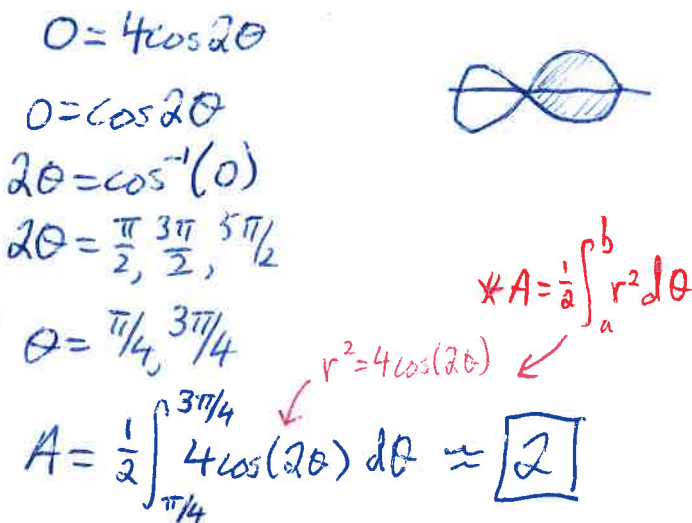 0=4cos2θ
0=cos2θ
2θ=cos⁻¹(0)
2θ=π/2, 3π/2, 5π/2
* A=½∫ₐᵇ r²dθ
θ=π/4, 3π/4
r²=4cos(2θ)
A=½∫_{π/4}^{3π/4} 4cos(2θ) dθ ≈ 2